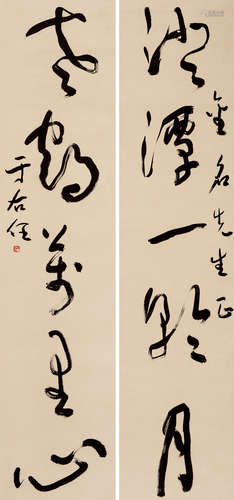 澄潭一點月
金名先生正
老鶴萬里心
于右任